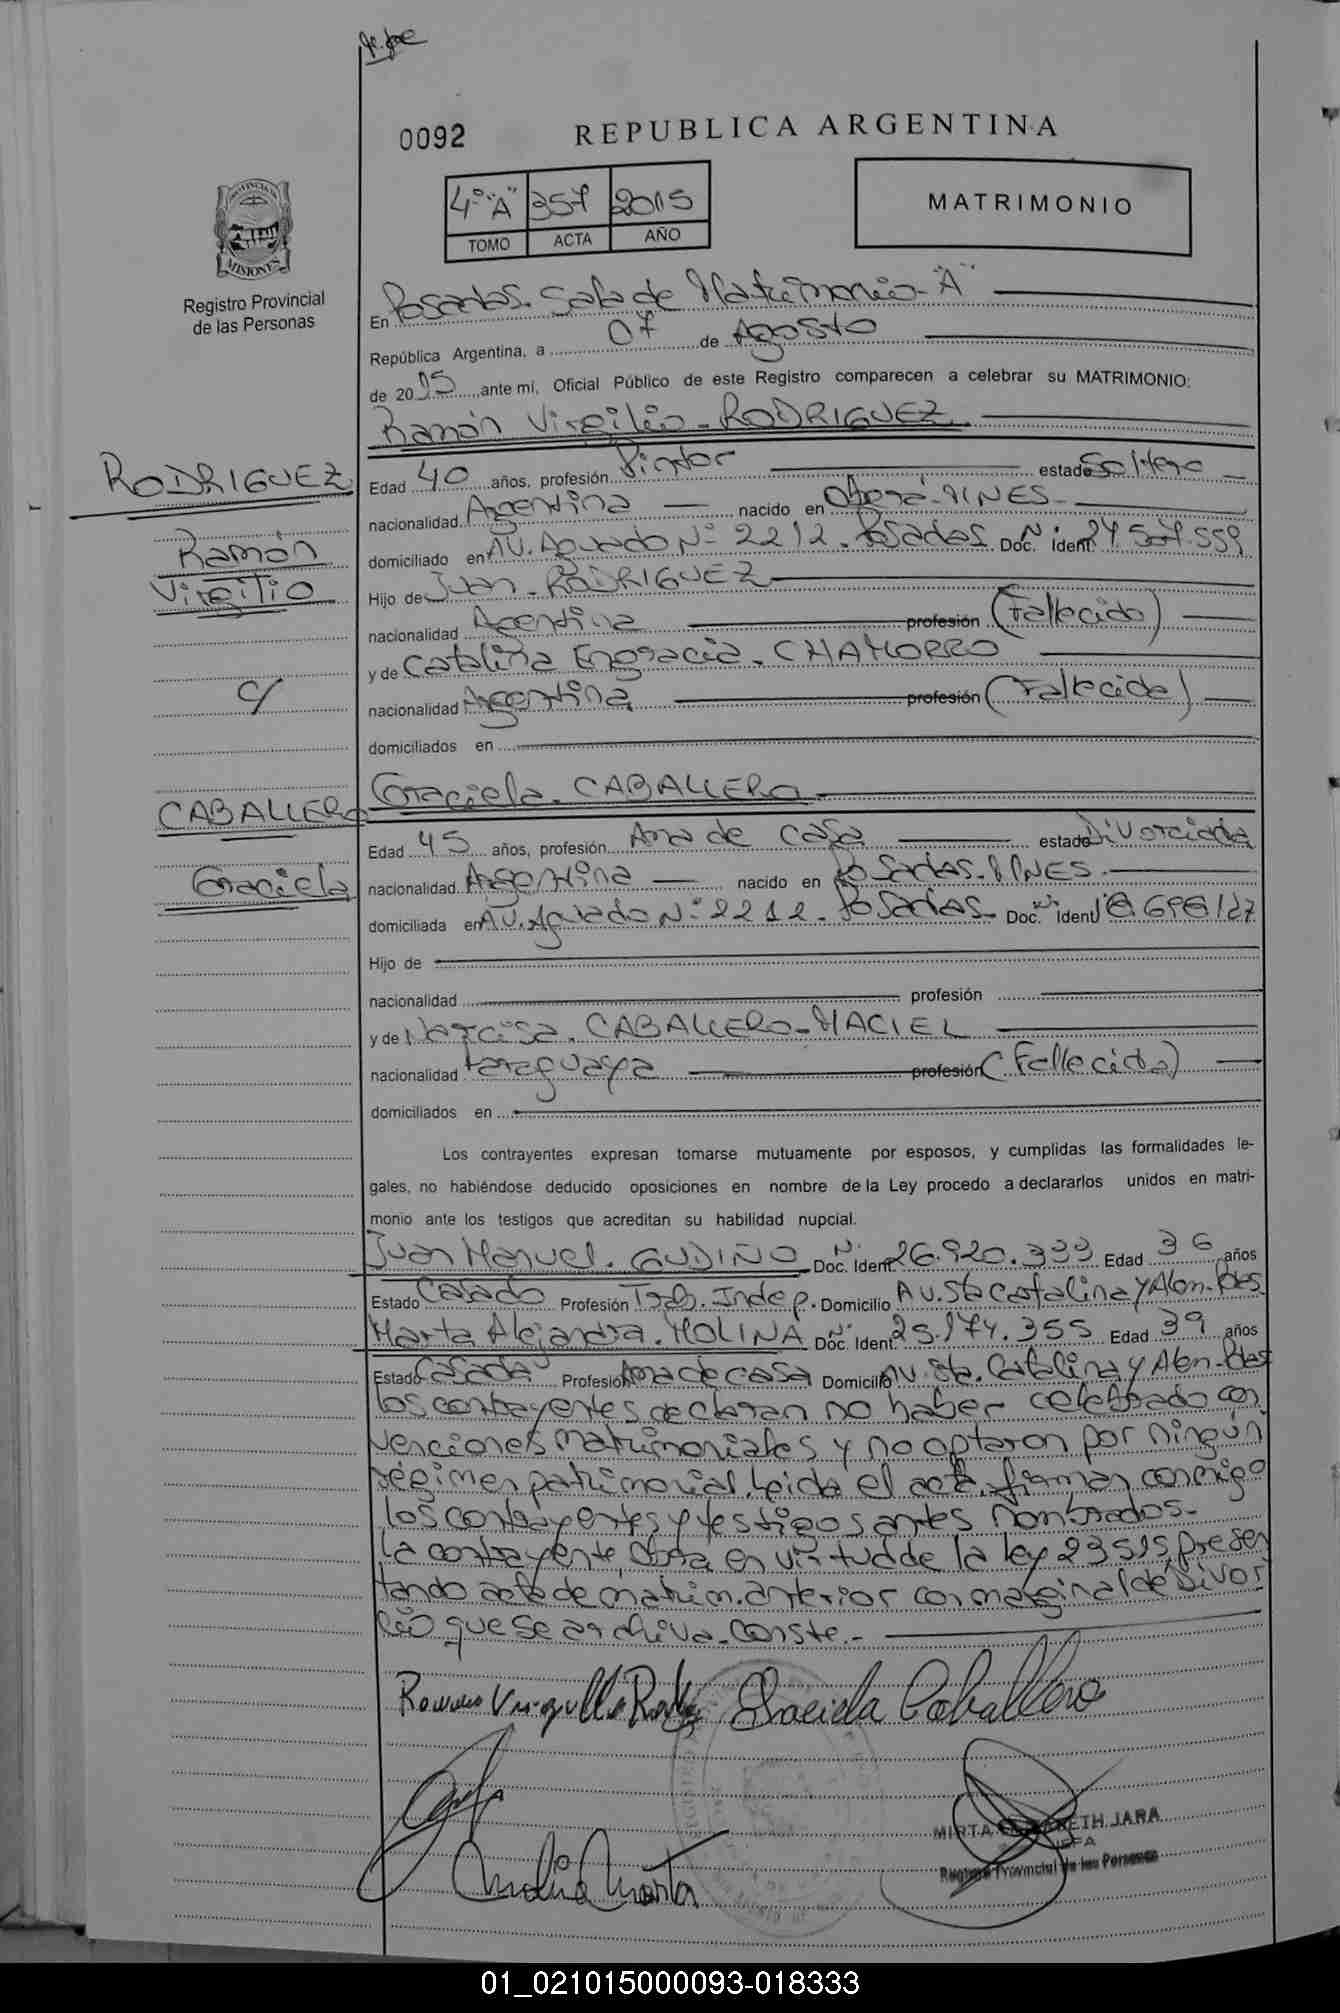 0092
REPUBLICA ARGENTINA
4º "A" 357 2015
TOMO ACTA AÑO
MATRIMONIO
PROVINCIA DE
MISIONES
Registro Provincial
de las Personas
En Posadas. Sala de Matrimonio "A"
República Argentina, a 07 de Agosto
de 2015 ante mí, Oficial Público de este Registro comparecen a celebrar su MATRIMONIO:
Ramón Virgilio RODRIGUEZ
RODRIGUEZ
Ramón
Virgilio
c/
CABALLERO
Graciela
Edad 40 años, profesión Pintor estado Soltero
nacionalidad Argentina nacido en Oberá-MNES-
domiciliado en AV. Aguado Nº 2212. Posadas Doc. Nº Ident 24.507.559
Hijo de Juan. RODRIGUEZ
nacionalidad Argentina profesión (Fallecido)
y de Catalina Engracia. CHAMORRO
nacionalidad Argentina profesión (Fallecida)
domiciliados en
Graciela. CABALLERO
Edad 45 años, profesión Ama de casa estado Divorciada
nacionalidad Argentina nacido en Posadas-MNES
domiciliada en AV. Aguado Nº 2212. Posadas- Doc. Nº Ident
Hijo de
nacionalidad profesión
y de Narcisa. CABALLERO-MACIEL
nacionalidad Paraguaya profesión (Fallecida)
domiciliados en
Los contrayentes expresan tomarse mutuamente por esposos, y cumplidas las formalidades le-
gales, no habiéndose deducido oposiciones en nombre de la Ley procedo a declararlos unidos en matri-
monio ante los testigos que acreditan su habilidad nupcial.
Juan Manuel. GUDIÑO Doc. Nº Ident 26.920.333 Edad 36 años
Estado Casado Profesión Trab. Indep. Domicilio Av. Sta Catalina y Alem-Pdas
Marta Alejandra. MOLINA Doc. Nº Ident 25.174.355 Edad 39 años
Estado Casada Profesión Ama de casa Domicilio AV. Sta. Catalina y Alem-Pdas
Los contrayentes declaran no haber celebrado con
venciones matrimoniales y no optaron por ningún
régimen patrimonial. Leída el acta, firman conmigo
los contrayentes y testigos antes nombrados-
La contrayente obra en virtud de la ley 23515, presen
tando acta de matrim. anterior con marginal de Divor
cio que se archiva. Conste.-
Graciela Caballero
MIRTA JARA
JEFA
Registro Provincial de las Personas
01_021015000093-018333